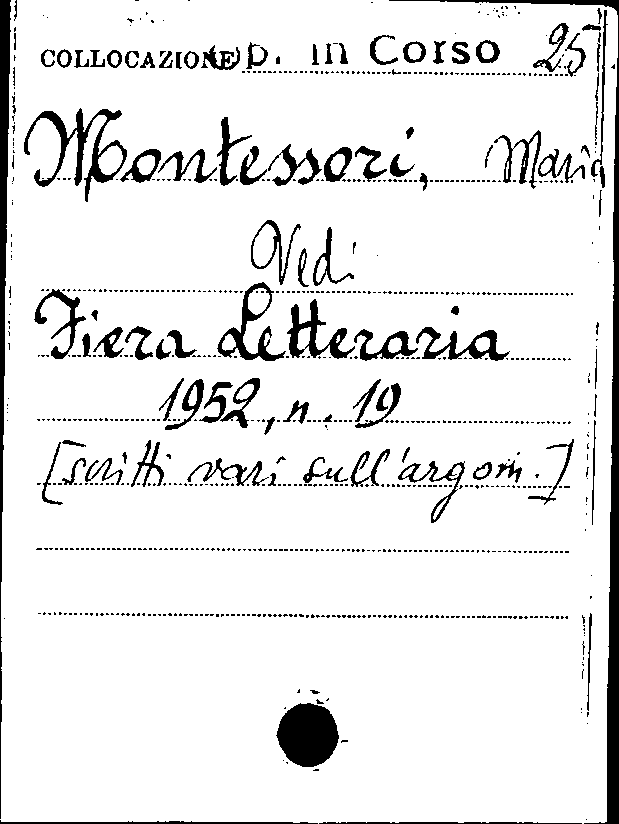 COLLOCAZIONE Op. in Corso 25
Montessori, Maria
Vedi
Fiera Letteraria
1952, n. 19
[scritti vari sull'argom.]